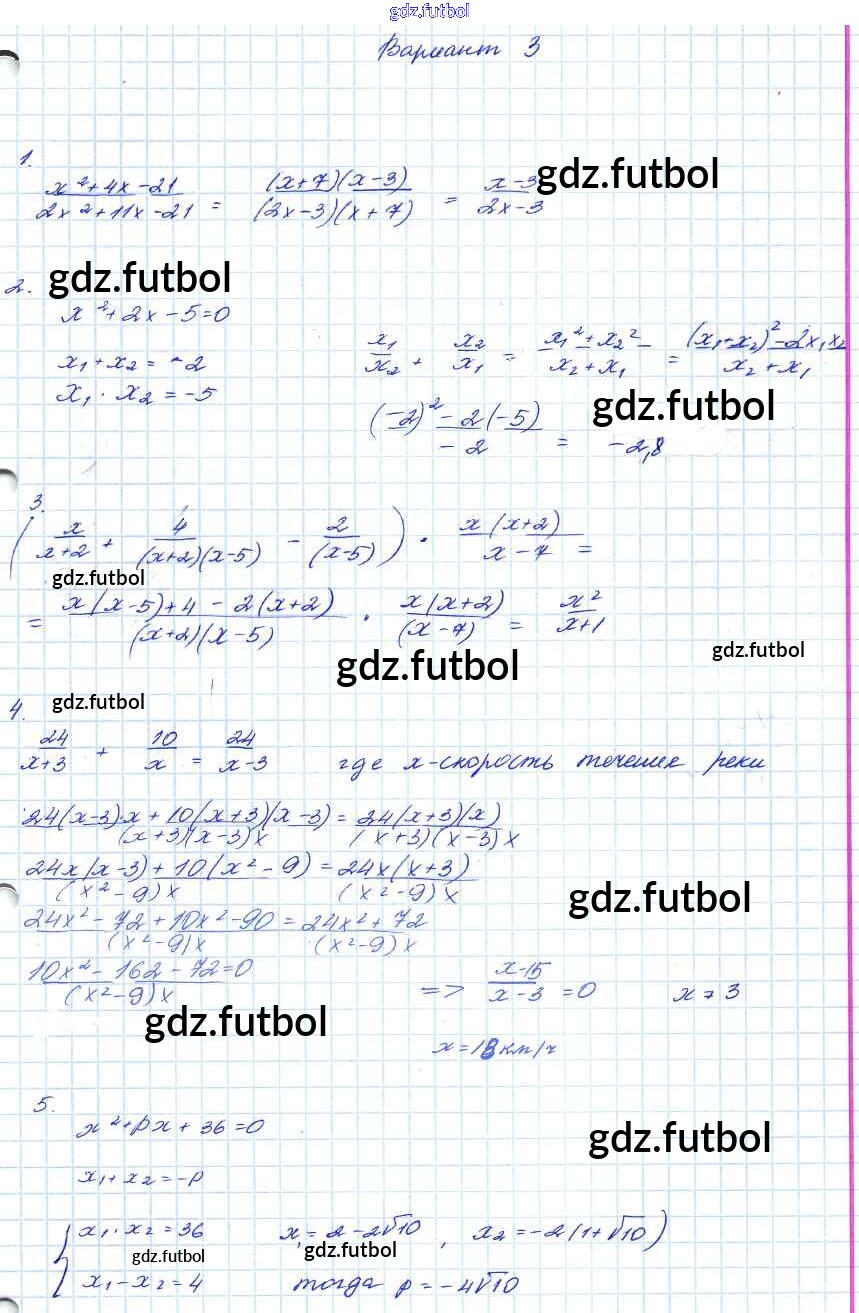 gdz.futbol
Вариант 3
1.
(x²+4x-21)/(2x²+11x-21) = ((x+7)(x-3))/((2x-3)(x+7)) = (x-3)/(2x-3)
gdz.futbol
2.
gdz.futbol
x²+2x-5=0
x₁+x₂=-2
x₁·x₂=-5
x₁/x₂ + x₂/x₁ = (x₁²+x₂²)/(x₂+x₁) = ((x₁+x₂)²-2x₁x₂)/(x₂+x₁)
gdz.futbol
((-2)²-2(-5))/(-2) = -2,8
3.
(x/(x+2) + 4/((x+2)(x-5)) - 2/(x-5)) · (x(x+2))/(x-7) =
gdz.futbol
= (x(x-5)+4-2(x+2))/((x+2)(x-5)) · (x(x+2))/(x-7) = x²/(x+1)
gdz.futbol
gdz.futbol
4.
gdz.futbol
24/(x+3) + 10/x = 24/(x-3) где x-скорость течения реки
(24(x-3)·x+10(x+3)(x-3))/((x+3)(x-3)x) = (24(x+3)(x))/((x+3)(x-3)x)
(24x(x-3)+10(x²-9))/((x²-9)x) = (24x(x+3))/((x²-9)x)
gdz.futbol
(24x²-72+10x²-90)/((x²-9)x) = (24x²+72)/((x²-9)x)
(10x²-162-72)/((x²-9)x)=0 => (x-15)/(x-3)=0 x 3
gdz.futbol
x=18км/ч
5.
x²+px+36=0
gdz.futbol
x₁+x₂=-p
{x₁·x₂=36 x₁=2-2√10, x₂=-2(1+√10)
gdz.futbol
gdz.futbol
x₁-x₂=4 тогда p=-4√10